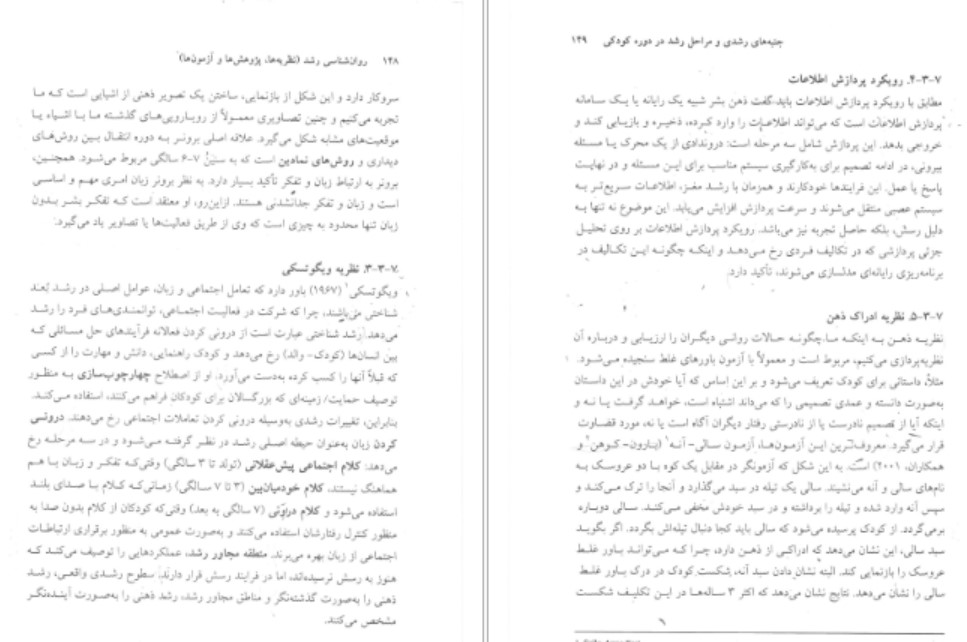 ۱۴۸ روان‌شناسی رشد (نظریه‌ها، پژوهش‌ها و آزمون‌ها)
سروکار دارد و این شکل از بازنمایی، ساختن یک تصویر ذهنی از اشیایی است که ما
تجربه می‌کنیم و چنین تصاویری معمولاً از رویارویی‌های گذشته ما با اشیاء یا
موقعیت‌های مشابه شکل می‌گیرد. علاقه اصلی برونر به دوره انتقال بین روش‌های
دیداری و روش‌های نمادین است که به سنین ۷-۶ سالگی مربوط می‌شود. همچنین،
برونر به ارتباط زبان و تفکر تأکید بسیار دارد. به نظر برونر زبان امری مهم و اساسی
است و زبان و تفکر جدانشدنی هستند. ازاین‌رو، او معتقد است که تفکر بشر بدون
زبان تنها محدود به چیزی است که وی از طریق فعالیت‌ها یا تصاویر یاد می‌گیرد.
۷-۳-۳. نظریه ویگوتسکی
ویگوتسکی۱ (۱۹۶۷) باور دارد که تعامل اجتماعی و زبان، عوامل اصلی در رشد بُعد
شناختی می‌باشند، چرا که شرکت در فعالیت اجتماعی، توانمندی‌های فرد را رشد
می‌دهد. رشد شناختی عبارت است از درونی کردن فعالانه فرآیندهای حل مسائلی که
بین انسان‌ها (کودک- والد) رخ می‌دهد و کودک راهنمایی، دانش و مهارت را از کسی
که قبلاً آنها را کسب کرده به‌دست می‌آورد. او از اصطلاح چهارچوب‌سازی به منظور
توصیف حمایت/ زمینه‌ای که بزرگسالان برای کودکان فراهم می‌کنند، استفاده می‌کند.
بنابراین، تغییرات رشدی به‌وسیله درونی کردن تعاملات اجتماعی رخ می‌دهند. درونی
کردن زبان به‌عنوان حیطه اصلی رشد در نظر گرفته می‌شود و در سه مرحله رخ
می‌دهد: کلام اجتماعی پیش‌عقلانی (تولد تا ۳ سالگی) وقتی‌که تفکر و زبان با هم
هماهنگ نیستند، کلام خودمیان‌بین (۳ تا ۷ سالگی) زمانی‌که کلام با صدای بلند
استفاده می‌شود و کلام درونی (۷ سالگی به بعد) وقتی‌که کودکان از کلام بدون صدا به
منظور کنترل رفتارشان استفاده می‌کند و به‌صورت عمومی به منظور برقراری ارتباطات
اجتماعی از زبان بهره می‌برند. منطقه مجاور رشد، عملکردهایی را توصیف می‌کند که
هنوز به رسش نرسیده‌اند، اما در فرایند رسش قرار دارند. سطوح رشدی واقعی، رشد
ذهنی را به‌صورت گذشته‌نگر و مناطق مجاور رشد، رشد ذهنی را به‌صورت آینده‌نگر
مشخص می‌کنند.
جنبه‌های رشدی و مراحل رشد در دوره کودکی ۱۴۹
۷-۳-۴. رویکرد پردازش اطلاعات
مطابق با رویکرد پردازش اطلاعات باید گفت ذهن بشر شبیه یک رایانه یا یک سامانه
پردازش اطلاعات است که می‌تواند اطلاعات را وارد کرده، ذخیره و بازیابی کند و
خروجی بدهد. این پردازش شامل سه مرحله است: درون‌دادی از یک محرک یا مسئله
بیرونی، در ادامه تصمیم برای به‌کارگیری سیستم مناسب برای این مسئله و در نهایت
پاسخ یا عمل. این فرایندها خودکارند و همزمان با رشد مغز، اطلاعات سریع‌تر به
سیستم عصبی منتقل می‌شوند و سرعت پردازش افزایش می‌یابد. این موضوع نه تنها به
دلیل رسش، بلکه حاصل تجربه نیز می‌باشد. رویکرد پردازش اطلاعات بر روی تحلیل
جزئی پردازشی که در تکالیف فردی رخ می‌دهد و اینکه چگونه این تکالیف در
برنامه‌ریزی رایانه‌ای مدلسازی می‌شوند، تأکید دارد.
۷-۳-۵. نظریه ادراک ذهن
نظریه ذهن به اینکه ما چگونه حالات روانی دیگران را ارزیابی و درباره آن
نظریه‌پردازی می‌کنیم، مربوط است و معمولاً با آزمون باورهای غلط سنجیده می‌شود.
مثلاً، داستانی برای کودک تعریف می‌شود و بر این اساس که آیا خودش در این داستان
به‌صورت دانسته و عمدی تصمیمی را که می‌داند اشتباه است، خواهد گرفت یا نه و
اینکه آیا از تصمیم نادرست یا از نادرستی رفتار دیگران آگاه است یا نه، مورد قضاوت
قرار می‌گیرد. معروف‌ترین این آزمون‌ها، آزمون سالی- آنه۱ (بارون- کوهن و
همکاران، ۲۰۰۱) است. به این شکل که آزمونگر در مقابل یک کوه با دو عروسک به
نام‌های سالی و آنه می‌نشیند. سالی یک تیله در سبد می‌گذارد و آنجا را ترک می‌کند و
سپس آنه وارد شده و تیله را برداشته و در سبد خودش مخفی می‌کند. سالی دوباره
برمی‌گردد. از کودک پرسیده می‌شود که سالی باید کجا دنبال تیله‌اش بگردد. اگر بگوید
سبد سالی، این نشان می‌دهد که ادراکی از ذهن دارد، چرا که می‌تواند باور غلط
عروسک را بازنمایی کند. البته نشان دادن سبد آنه، شکست کودک در درک باور غلط
سالی را نشان می‌دهد. نتایج نشان می‌دهد که اکثر ۳ ساله‌ها در این تکلیف شکست